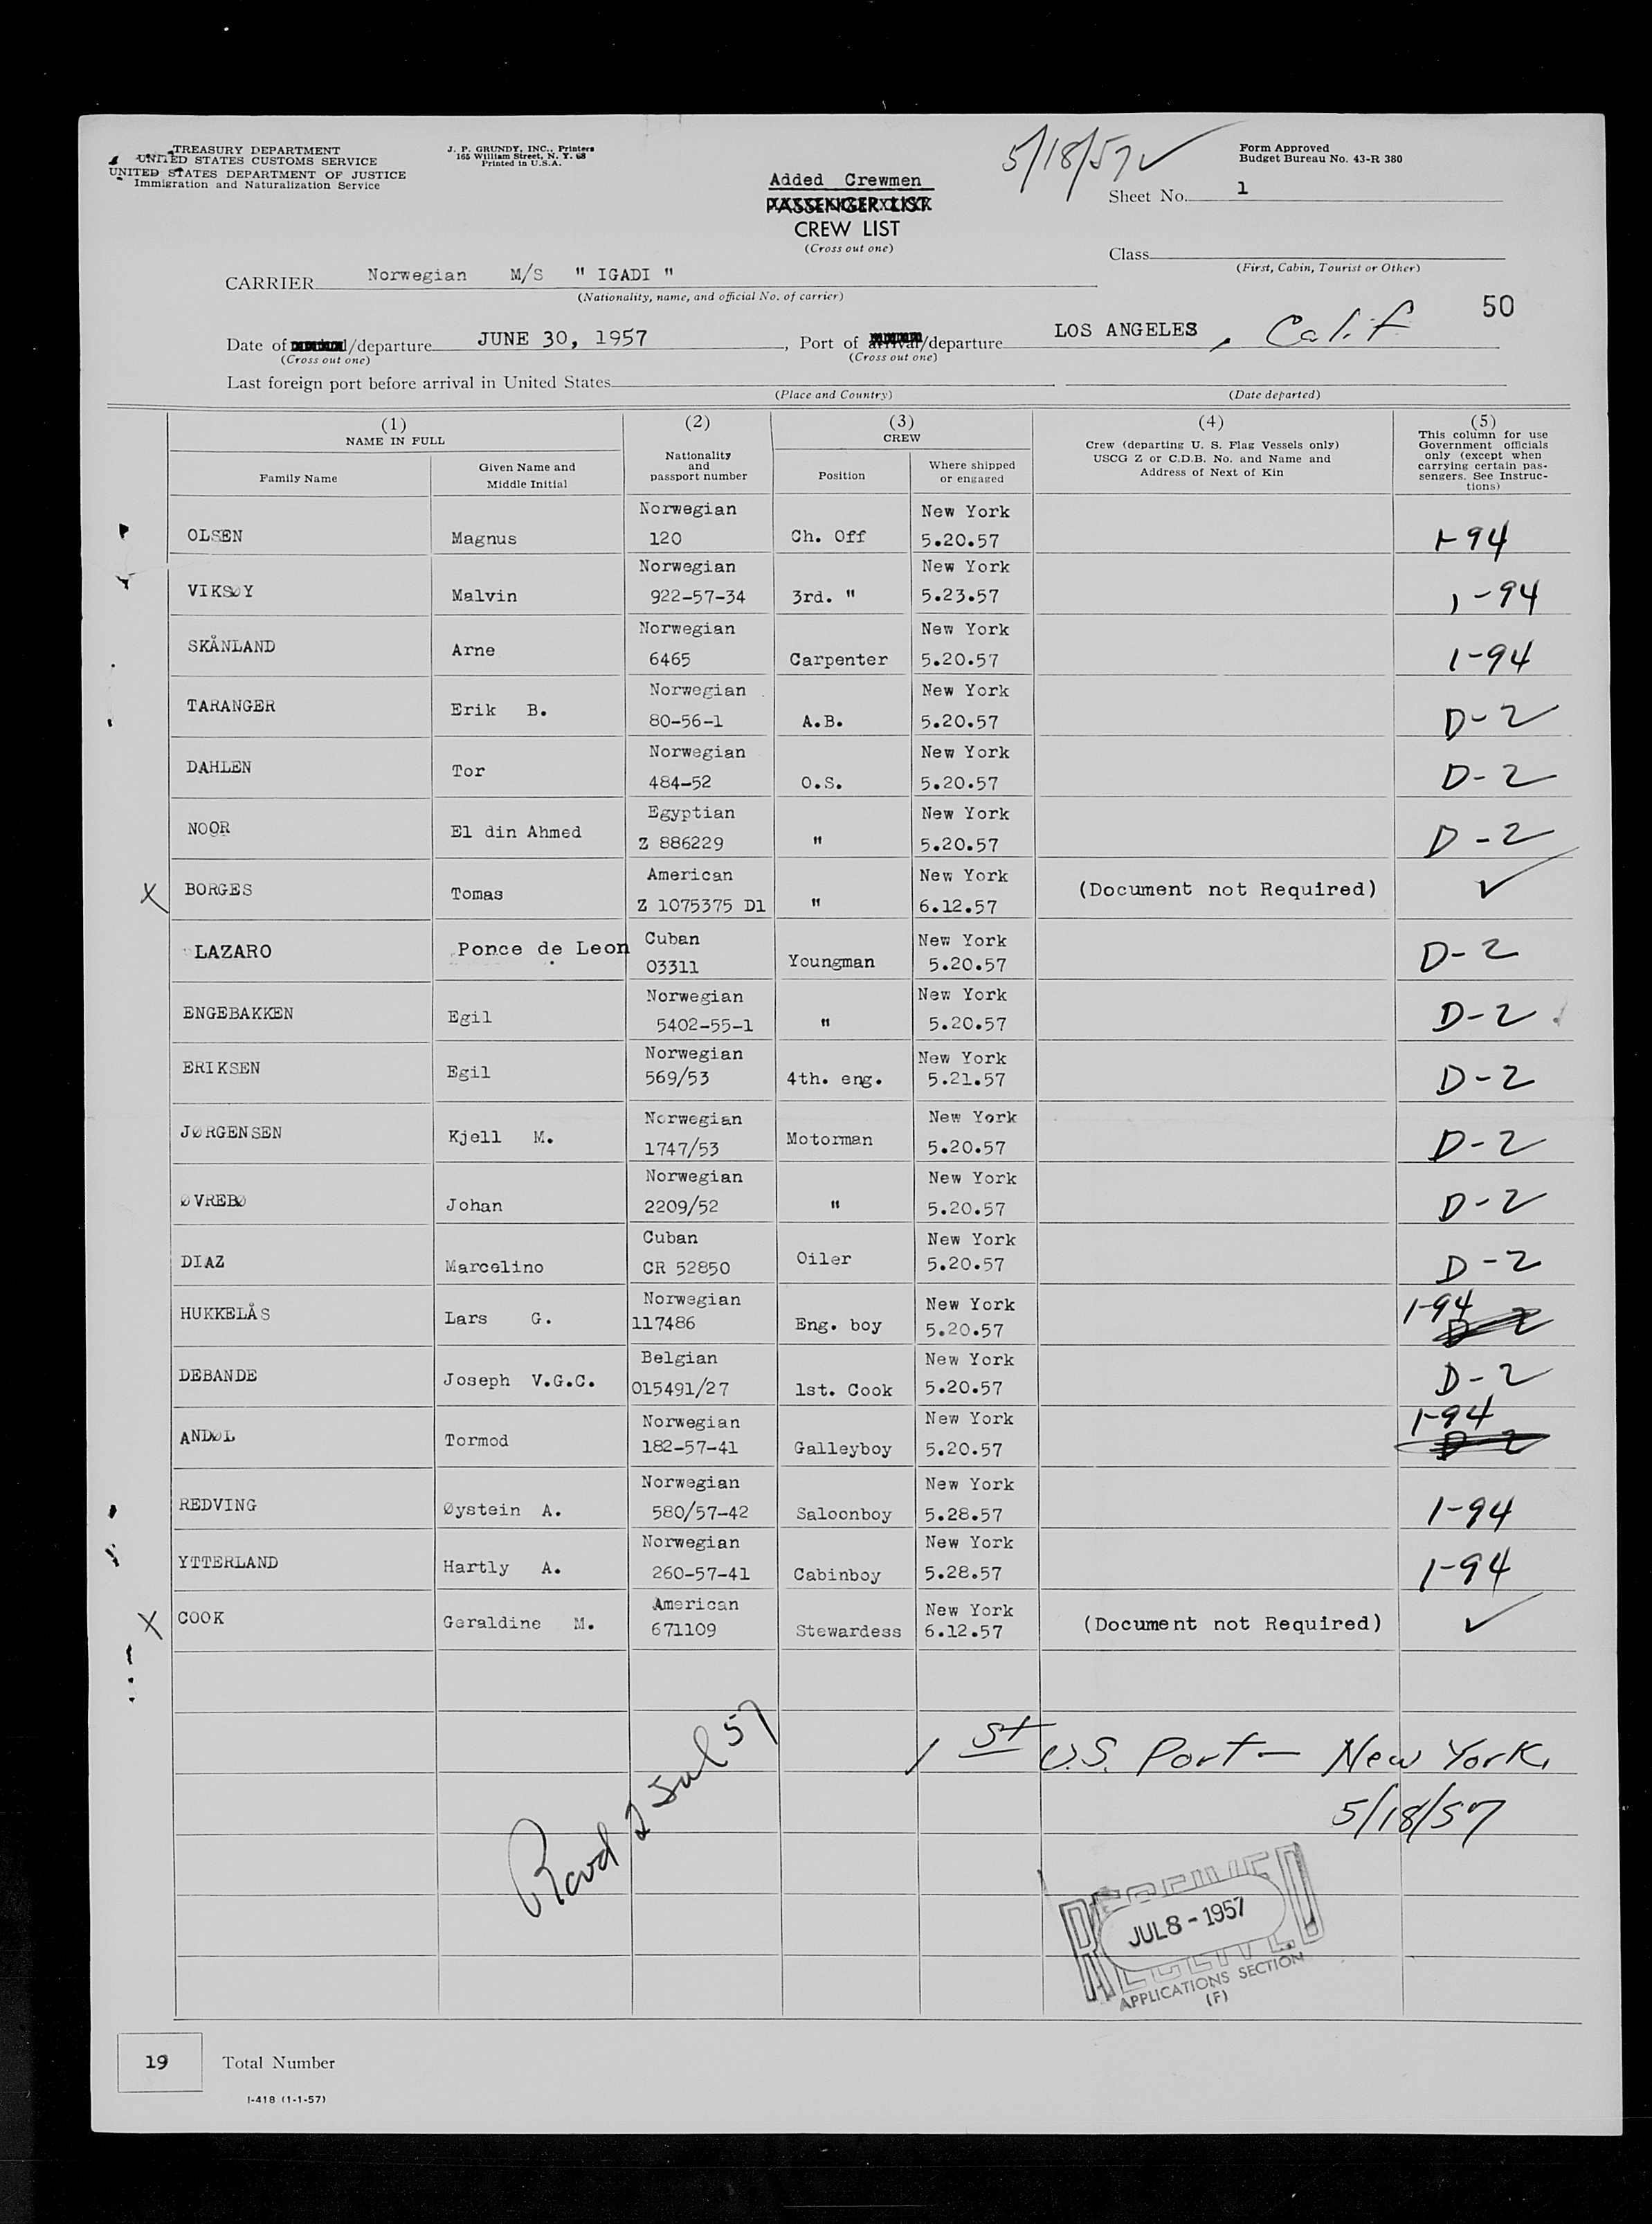 TREASURY DEPARTMENT
UNITED STATES CUSTOMS SERVICE
UNITED STATES DEPARTMENT OF JUSTICE
Immigration and Naturalization Service
J. P. GRUNDY, INC., Printers
165 William Street, N. Y. 68
Printed in U.S.A.
5/18/57
Form Approved
Budget Bureau No. 43-R 380
Added Crewmen
PASSENGER LIST
CREW LIST
(Cross out one)
Sheet No. 1
Class
(First, Cabin, Tourist or Other)
CARRIER Norwegian M/S " IGADI "
(Nationality, name, and official No. of carrier)
50
Date of /departure JUNE 30, 1957, Port of arrival/departure LOS ANGELES, Calif
(Cross out one) (Cross out one)
Last foreign port before arrival in United States
(Place and Country) (Date departed)
(1) (2) (3) (4) (5)
NAME IN FULL
Family Name
Given Name and
Middle Initial
Nationality
and
passport number
CREW
Position
Where shipped
or engaged
Crew (departing U. S. Flag Vessels only)
USCG Z or C.D.B. No. and Name and
Address of Next of Kin
This column for use
Government officials
only (except when
carrying certain pas-
sengers. See Instruc-
tions)
Norwegian New York
OLSEN Magnus 120 Ch. Off 5.20.57 1-94
Norwegian New York
VIKSØY Malvin 922-57-34 3rd. " 5.23.57 1-94
Norwegian New York
SKÅNLAND Arne 6465 Carpenter 5.20.57 1-94
Norwegian New York
TARANGER Erik B. 80-56-1 A.B. 5.20.57 D-2
Norwegian New York
DAHLEN Tor 484-52 O.S. 5.20.57 D-2
Egyptian New York
NOOR El din Ahmed Z 886229 " 5.20.57 D-2
American New York
X BORGES Tomas Z 1075375 D1 " 6.12.57 (Document not Required) ✓
Cuban New York
LAZARO Ponce de Leon 03311 Youngman 5.20.57 D-2
Norwegian New York
ENGEBAKKEN Egil 5402-55-1 " 5.20.57 D-2
Norwegian New York
ERIKSEN Egil 569/53 4th. eng. 5.21.57 D-2
Norwegian New York
JØRGENSEN Kjell M. 1747/53 Motorman 5.20.57 D-2
Norwegian New York
ØVREBØ Johan 2209/52 " 5.20.57 D-2
Cuban New York
DIAZ Marcelino CR 52850 Oiler 5.20.57 D-2
Norwegian New York
HUKKELÅS Lars G. 117486 Eng. boy 5.20.57 1-94 D-2
Belgian New York
DEBANDE Joseph V.G.C. 015491/27 1st. Cook 5.20.57 D-2
Norwegian New York
ANDØL Tormod 182-57-41 Galleyboy 5.20.57 1-94 D-2
Norwegian New York
REDVING Øystein A. 580/57-42 Saloonboy 5.28.57 1-94
Norwegian New York
YTTERLAND Hartly A. 260-57-41 Cabinboy 5.28.57 1-94
American New York
X COOK Geraldine M. 671109 Stewardess 6.12.57 (Document not Required) ✓
1st U.S. Port - New York,
5/18/57
Rcvd 2 Jul 57
RECEIVED
JUL 8 - 1957
RECEIVED
APPLICATIONS SECTION
(F)
19 Total Number
I-418 (1-1-57)